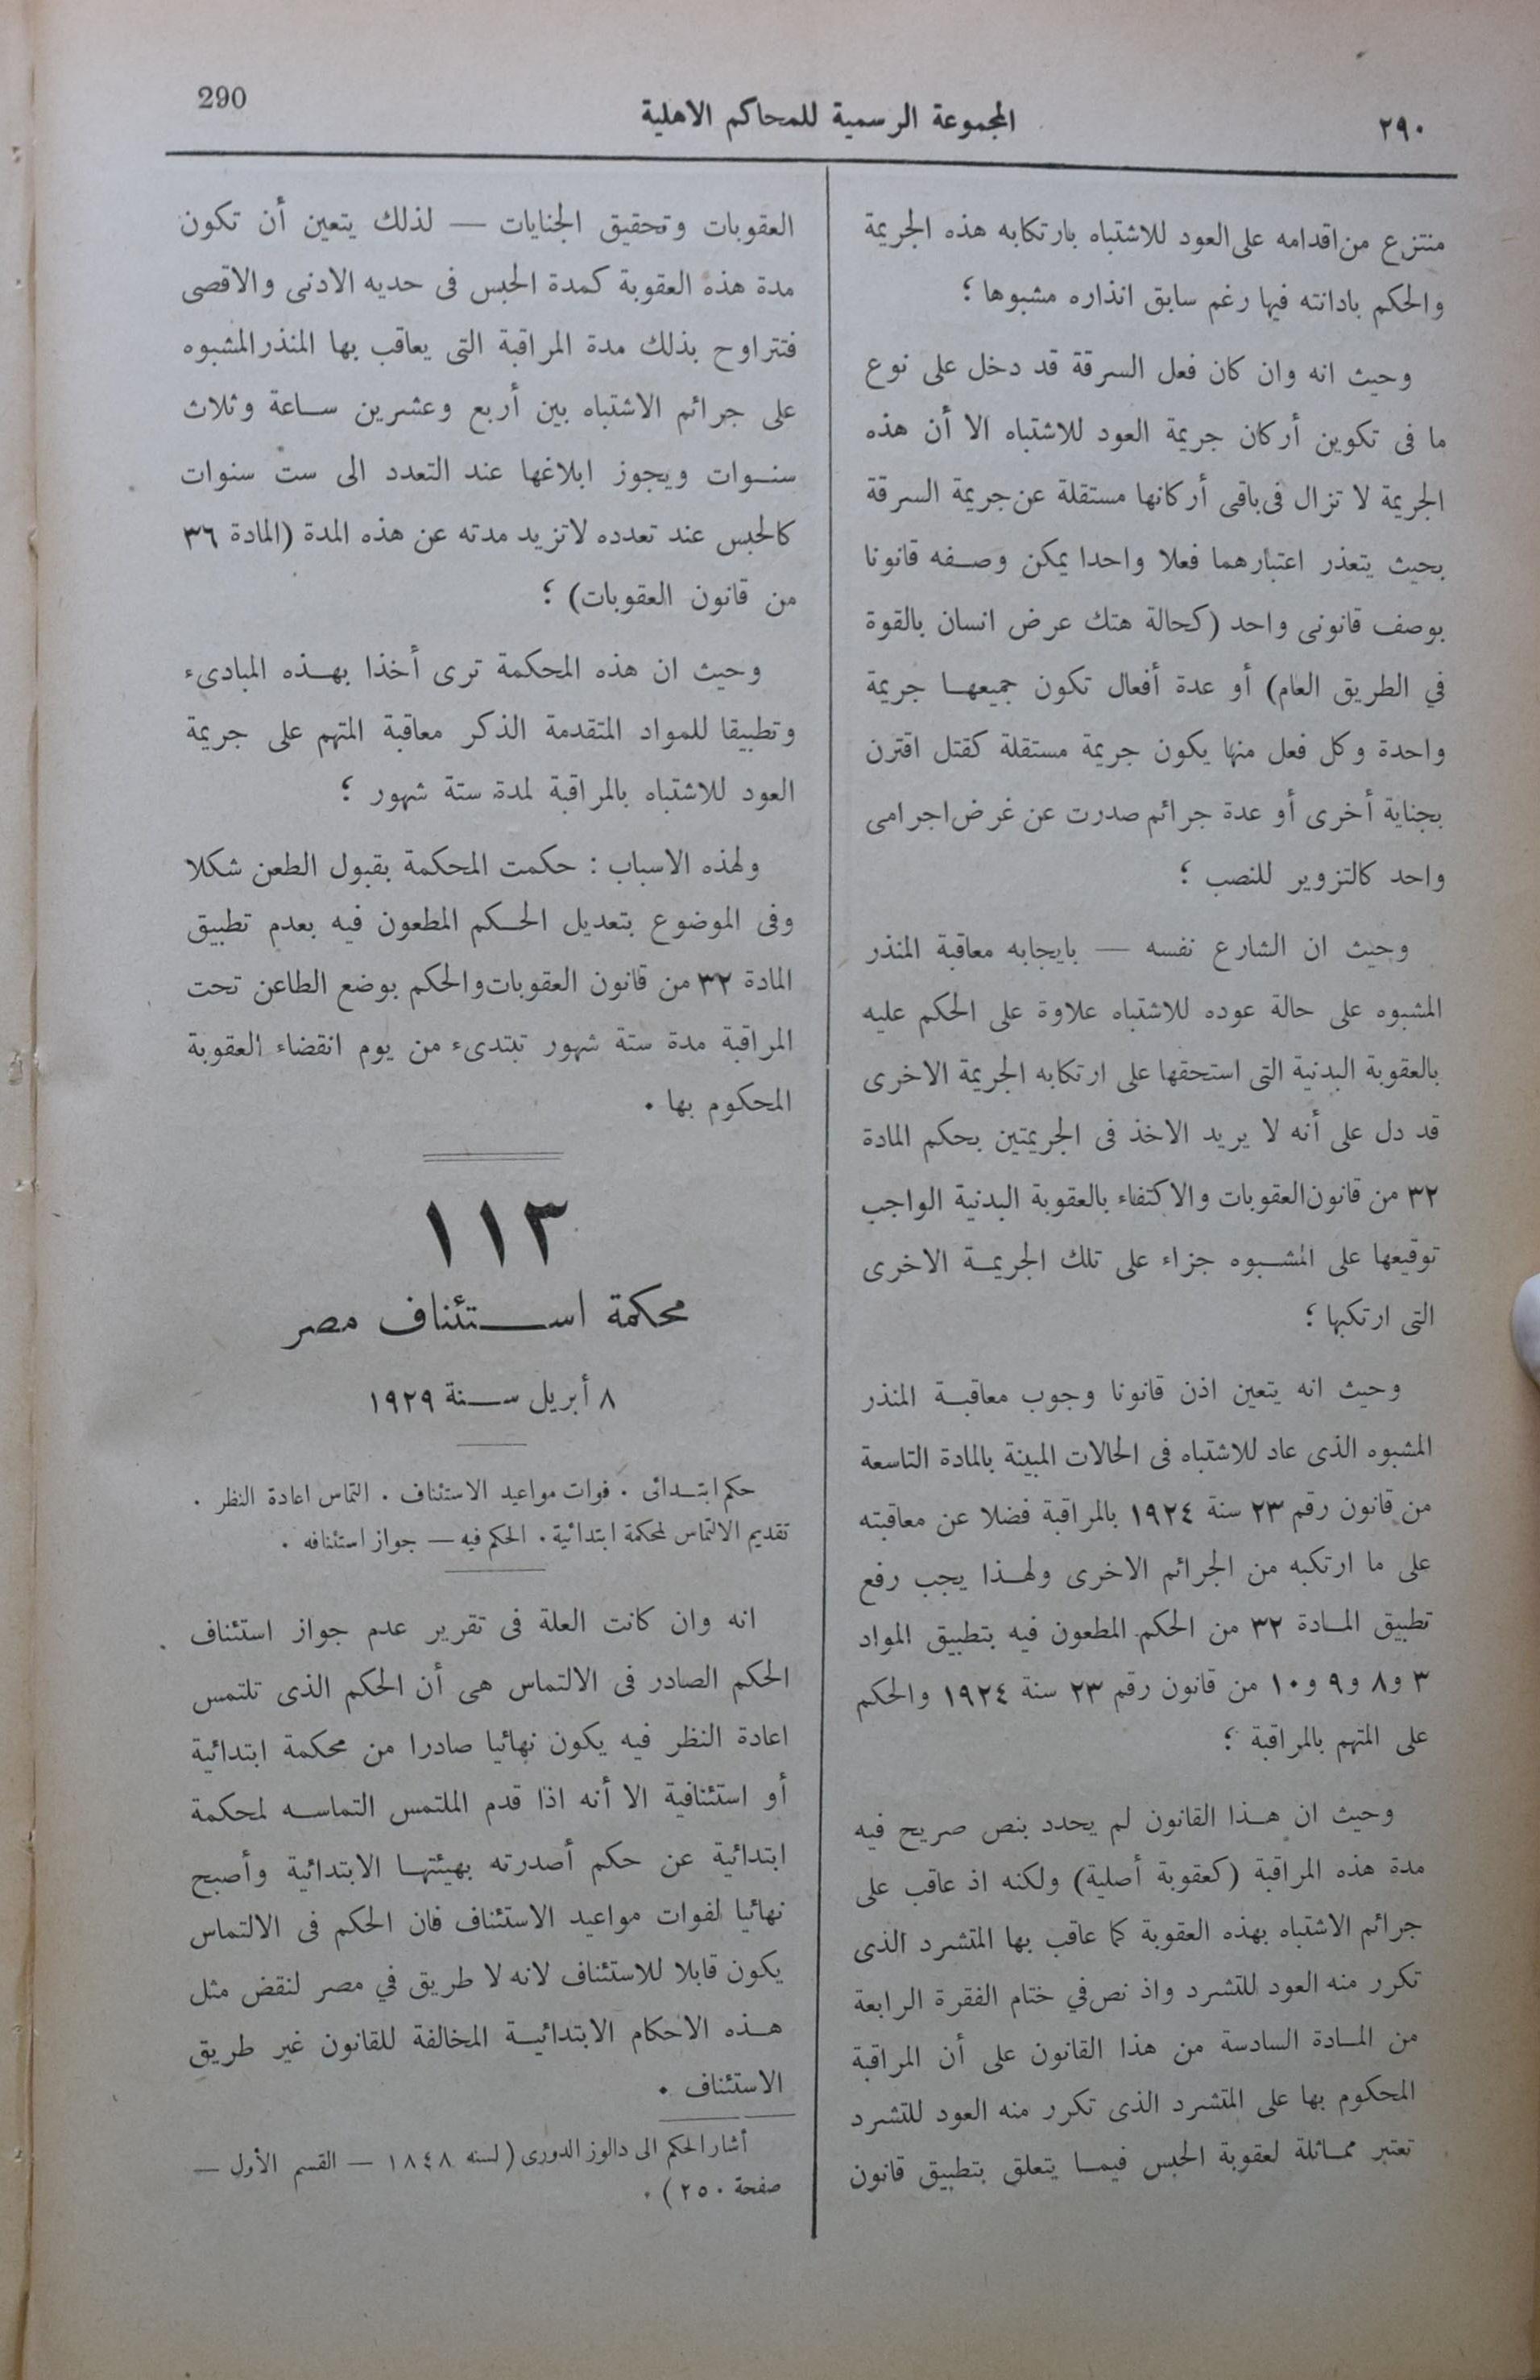 290
المجموعة الرسمية للمحاكم الاهلية
٢٩٠
منتزع من اقدامه على العود للاشتباه بارتكابه هذه الجريمة
والحكم بادانته فيها رغم سابق انذاره مشبوها ؛
وحيث انه وان كان فعل السرقة قد دخل على نوع
ما فى تكوين أركان جريمة العود للاشتباه الا أن هذه
الجريمة لا تزال فى باقى أركانها مستقلة عن جريمة السرقة
بحيث يتعذر اعتبارهما فعلا واحدا يمكن وصفه قانونا
بوصف قانونى واحد (كحالة هتك عرض انسان بالقوة
في الطريق العام) أو عدة أفعال تكون جميعها جريمة
واحدة وكل فعل منها يكون جريمة مستقلة كقتل اقترن
بجناية أخرى أو عدة جرائم صدرت عن غرض اجرامى
واحد كالتزوير للنصب ؛
وحيث ان الشارع نفسه — بايجابه معاقبة المنذر
المشبوه على حالة عوده للاشتباه علاوة على الحكم عليه
بالعقوبة البدنية التى استحقها على ارتكابه الجريمة الاخرى
قد دل على أنه لا يريد الاخذ فى الجريمتين بحكم المادة
٣٢ من قانون العقوبات والاكتفاء بالعقوبة البدنية الواجب
توقيعها على المشبوه جزاء على تلك الجريمة الاخرى
التى ارتكبها ؛
وحيث انه يتعين اذن قانونا وجوب معاقبة المنذر
المشبوه الذى عاد للاشتباه فى الحالات المبينة بالمادة التاسعة
من قانون رقم ٢٣ سنة ١٩٢٤ بالمراقبة فضلا عن معاقبته
على ما ارتكبه من الجرائم الاخرى ولهذا يجب رفع
تطبيق المادة ٣٢ من الحكم المطعون فيه بتطبيق المواد
٣ و٨ و٩ و١٠ من قانون رقم ٢٣ سنة ١٩٢٤ والحكم
على المتهم بالمراقبة ؛
وحيث ان هذا القانون لم يحدد بنص صريح فيه
مدة هذه المراقبة (كعقوبة أصلية) ولكنه اذ عاقب على
جرائم الاشتباه بهذه العقوبة كما عاقب بها المتشرد الذى
تكرر منه العود للتشرد واذ نص في ختام الفقرة الرابعة
من المادة السادسة من هذا القانون على أن المراقبة
المحكوم بها على المتشرد الذى تكرر منه العود للتشرد
تعتبر مماثلة لعقوبة الحبس فيما يتعلق بتطبيق قانون
العقوبات وتحقيق الجنايات — لذلك يتعين أن تكون
مدة هذه العقوبة كمدة الحبس فى حديه الادنى والاقصى
فتتراوح بذلك مدة المراقبة التى يعاقب بها المنذر المشبوه
على جرائم الاشتباه بين أربع وعشرين ساعة وثلاث
سنوات ويجوز ابلاغها عند التعدد الى ست سنوات
كالحبس عند تعدده لا تزيد مدته عن هذه المدة (المادة ٣٦
من قانون العقوبات) ؛
وحيث ان هذه المحكمة ترى أخذا بهذه المبادىء
وتطبيقا للمواد المتقدمة الذكر معاقبة المتهم على جريمة
العود للاشتباه بالمراقبة لمدة ستة شهور ؛
ولهذه الاسباب : حكمت المحكمة بقبول الطعن شكلا
وفى الموضوع بتعديل الحكم المطعون فيه بعدم تطبيق
المادة ٣٢ من قانون العقوبات والحكم بوضع الطاعن تحت
المراقبة مدة ستة شهور تبتدىء من يوم انقضاء العقوبة
المحكوم بها ٠
١١٣
محكمة استئناف مصر
٨ أبريل سنة ١٩٢٩
حكم ابتدائى . فوات مواعيد الاستئناف . التماس اعادة النظر .
تقديم الالتماس لمحكمة ابتدائية . الحكم فيه — جواز استئنافه .
انه وان كانت العلة فى تقرير عدم جواز استئناف
الحكم الصادر فى الالتماس هى أن الحكم الذى تلتمس
اعادة النظر فيه يكون نهائيا صادرا من محكمة ابتدائية
أو استئنافية الا أنه اذا قدم الملتمس التماسه لمحكمة
ابتدائية عن حكم أصدرته بهيئتها الابتدائية وأصبح
نهائيا لفوات مواعيد الاستئناف فان الحكم فى الالتماس
يكون قابلا للاستئناف لانه لا طريق في مصر لنقض مثل
هذه الاحكام الابتدائية المخالفة للقانون غير طريق
الاستئناف ٠
أشار الحكم الى دالوز الدورى (لسنه ١٨٤٨ — القسم الأول —
صفحة ٢٥٠) .